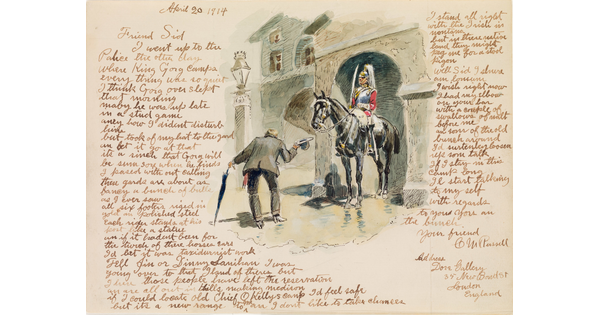 April 20 1914
Friend Sid
I went up to the
Palice the other day
where King Gorg camps
every thing was so quiet
I think Gorg over slept
that morning
maby he was up late
in a stud game
aney how I dident disturb
him
but took of my hat to the gard
an let it go at that
its a sinch that Gorg will
be sum sore when he finds
I passed with out calling
these gards are about as
haney a bunch of bulls
as I ever saw
all six footers riged in
gold an polished steel
Each rider stands at his
post like a statue
an if it hadent been for
the twich of there horses ears
I'd bet it was taxidermist work
Tell Jin or Jimmy Sanihan I was
going over to that Island of theres but
I hear those people have left the reservation
an are all out in hills making medison
if I could locate old Chief O Kellys camp I'd feel safe
but its a new range to me an I dont like to take chances
I stand all right
with the Irish in
montina
but in there native
land they might
peg me for a stool
pigon
well Sid I shure
am lonsum
I wish right now
I had my elbow
on your bar
with a couple of
swallows of malt
before me
an sons of the old
bunch around
I'd surtenley loosen
up son talk
if I stay in this
camp long
I'll start talking
to my self
with regards
to your an
the bunch
Your friend
C M Russell
Address
Dore Gallery
35 New Bond St
London
England